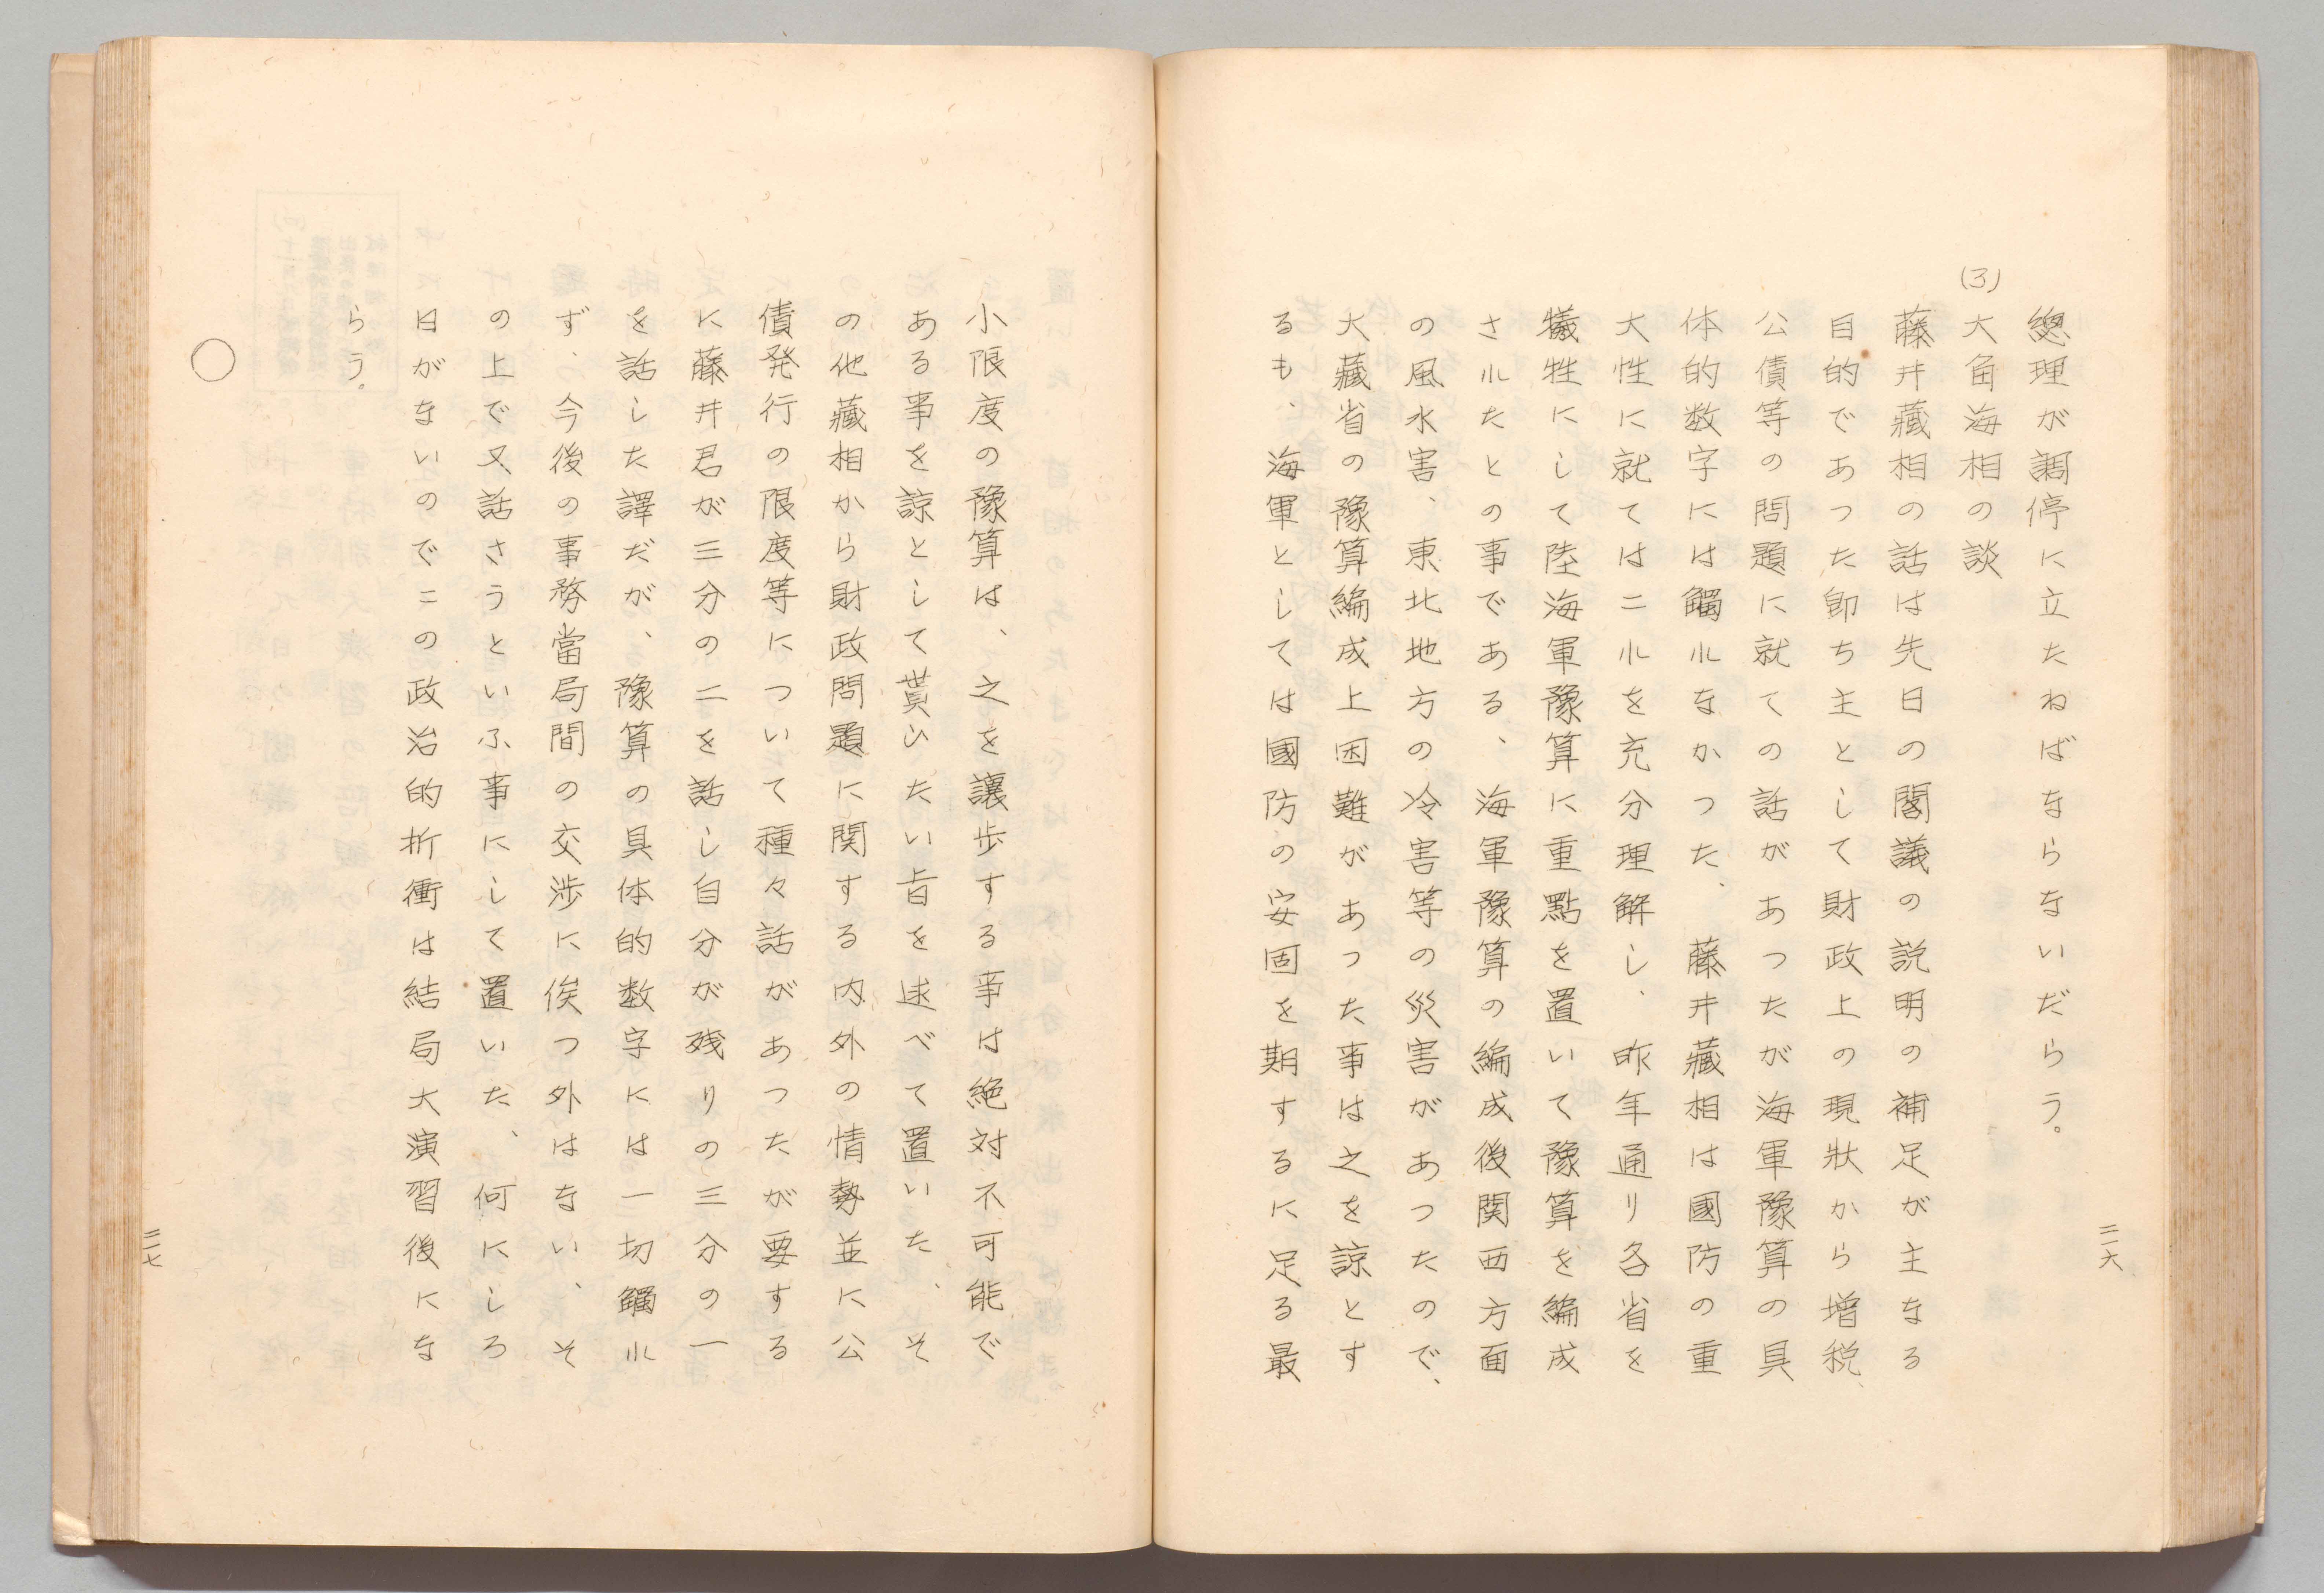 總理が調停に立たねばならないだらう。
(3)
大角海相の談
藤井藏相の話は先日の閣議の説明の補足が主なる
目的であつた卽ち主として財政上の現狀から增税、
公債等の問題に就ての話があつたが海軍豫算の具
体的数字には觸れなかつた、藤井藏相は國防の重
大性に就てはこれを充分理解し、昨年通り各省を
犠牲にして陸海軍豫算に重點を置いて豫算を編成
されたとの事である、海軍豫算の編成後関西方面
の風水害、東北地方の冷害等の災害があつたので、
大藏省の豫算編成上困難があつた事は之を諒とす
るも、海軍としては國防の安固を期するに足る最
二一六
小限度の豫算は、之を讓歩する事は絶対不可能で
ある事を諒として貰ひたい旨を述べて置いた、そ
の他藏相から財政問題に関する内外の情勢並に公
債発行の限度等について種々話があつたが要する
に藤井君が三分の二を話し自分が残りの三分の一
を話した譯だが、豫算の具体的数字には一切觸れ
ず、今後の事務當局間の交渉に俟つ外はない、そ
の上で又話さうといふ事にして置いた、何にしろ
日がないのでこの政治的折衝は結局大演習後にな
らう。
二一七